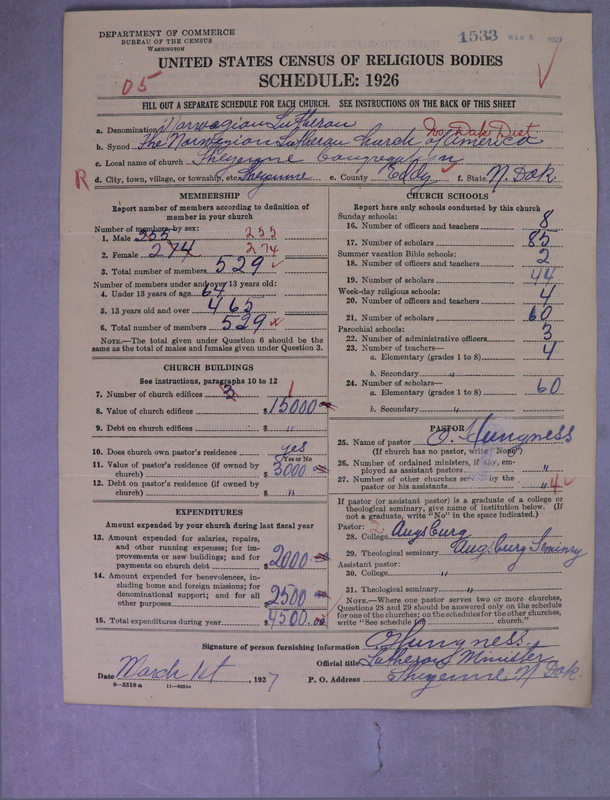 DEPARTMENT OF COMMERCE
BUREAU OF THE CENSUS
WASHINGTON
1533 MAR 5 1927
UNITED STATES CENSUS OF RELIGIOUS BODIES
SCHEDULE: 1926
05
FILL OUT A SEPARATE SCHEDULE FOR EACH CHURCH. SEE INSTRUCTIONS ON THE BACK OF THIS SHEET
a. Denomination Norwegian Lutheran
No. Dak Dist.
b. Synod The Norwegian Lutheran Church of America
c. Local name of church Sheyenne Congregation
R d. City, town, village, or township, etc. Sheyenne e. County Eddy f. State N Dak
MEMBERSHIP
Report number of members according to definition of
member in your church
Number of members by sex:
1. Male 255 255
2. Female 274 274
3. Total number of members 529
Number of members under and over 13 years old:
4. Under 13 years of age 64
5. 13 years old and over 465
6. Total number of members 529 x
NOTE.—The total given under Question 6 should be the
same as the total of males and females given under Question 3.
CHURCH BUILDINGS
See instructions, paragraphs 10 to 12
7. Number of church edifices 3 1
8. Value of church edifices $15000
9. Debt on church edifices $ "
10. Does church own pastor's residence? yes
Yes or No
11. Value of pastor's residence (if owned by
church) $3000
12. Debt on pastor's residence (if owned by
church) $ "
EXPENDITURES
Amount expended by your church during last fiscal year
13. Amount expended for salaries, repairs,
and other running expenses; for im-
provements or new buildings; and for
payments on church debt $2000
14. Amount expended for benevolences, in-
cluding home and foreign missions; for
denominational support; and for all
other purposes $2500
15. Total expenditures during year $4500.00
CHURCH SCHOOLS
Report here only schools conducted by this church
Sunday schools:
16. Number of officers and teachers 8
17. Number of scholars 85
Summer vacation Bible schools:
18. Number of officers and teachers 2
19. Number of scholars 44
Week-day religious schools:
20. Number of officers and teachers 4
21. Number of scholars 60
Parochial schools:
22. Number of administrative officers 3
23. Number of teachers—
a. Elementary (grades 1 to 8) 4
b. Secondary "
24. Number of scholars—
a. Elementary (grades 1 to 8) 60
b. Secondary "
PASTOR
25. Name of pastor O. Hungness
(If church has no pastor, write "None")
26. Number of ordained ministers, if any, em-
ployed as assistant pastors "
27. Number of other churches served by the
pastor or his assistants " 4
If pastor (or assistant pastor) is a graduate of a college or
theological seminary, give name of institution below. (If
not a graduate, write "No" in the space indicated.)
Pastor: 2
28. College Augsburg
29. Theological seminary Augsburg Seminry
Assistant pastor:
30. College "
31. Theological seminary "
NOTE.—Where one pastor serves two or more churches,
Questions 28 and 29 should be answered only on the schedule
for one of the churches; on the schedules for the other churches,
write "See schedule for church."
Signature of person furnishing information O Hungness
Official title Lutheran Minister
Date March 1st, 1927 P. O. Address Sheyenne N Dak.
8—5518a 11—9034